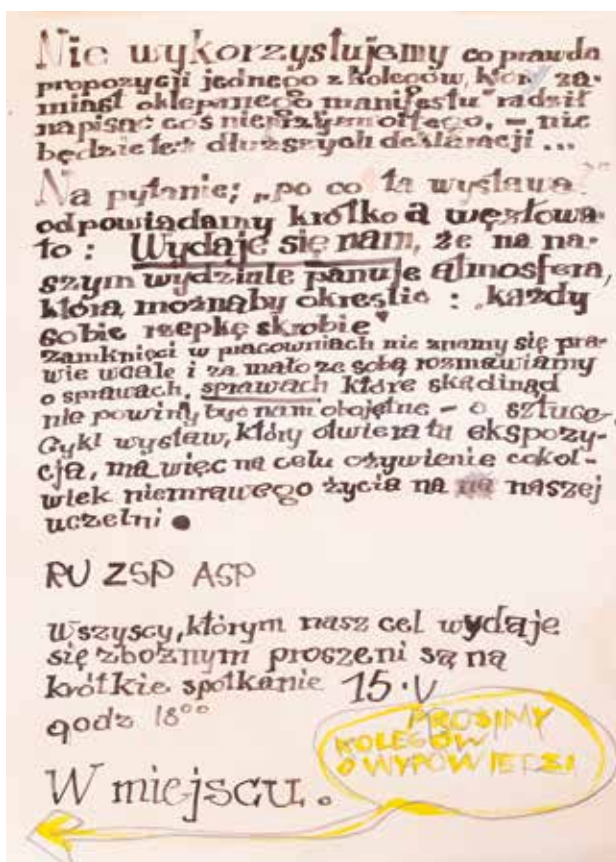 Nie wykorzystujemy co prawda
propozycji jednego z kolegów, który za-
miast oklepanego manifestu" radził
napisać coś nieprzyzwoitego, – nie
będzie też dłuższych deklaracji ...
Na pytanie; „po co ta wystawa?"
odpowiadamy krótko a węzłowa-
to : Wydaje się nam, że na na-
szym wydziale panuje atmosfera,
którą możnaby określić : „każdy
sobie rzepkę skrobie"
zamknięci w pracowniach nie znamy się pra-
wie wcale i za mało ze sobą rozmawiamy
o sprawach, sprawach które skądinąd
nie powinny być nam obojętne – o sztuce.
Cykl wystaw, który otwiera ta ekspozy-
cja, ma więc na celu ożywienie cokol-
wiek niemrawego życia na na naszej
uczelni.
RU ZSP ASP
Wszyscy, którym nasz cel wydaje
się zbożnym proszeni są na
krótkie spotkanie 15.V
godz 18⁰⁰
PROSIMY
KOLEGÓW
O WYPOWIEDZI
W miejscu.